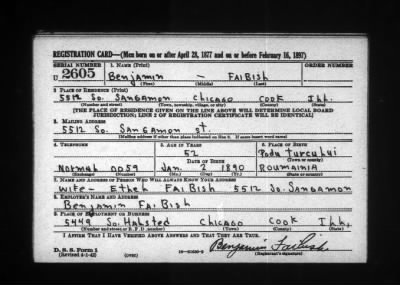 REGISTRATION CARD—(Men born on or after April 28, 1877 and on or before February 16, 1897)
SERIAL NUMBER 1. NAME (Print) ORDER NUMBER
U 2605 Benjamin — FAIBish
(First) (Middle) (Last)
2. PLACE OF RESIDENCE (Print)
5512 So. SANGAMON CHICAGO COOK Ill.
(Number and street) (Town, township, village, or city) (County) (State)
[THE PLACE OF RESIDENCE GIVEN ON THE LINE ABOVE WILL DETERMINE LOCAL BOARD
JURISDICTION; LINE 2 OF REGISTRATION CERTIFICATE WILL BE IDENTICAL]
3. MAILING ADDRESS
5512 So. SANGAMON ST.
[Mailing address if other than place indicated on line 2. If same insert word same]
4. TELEPHONE 5. AGE IN YEARS 6. PLACE OF BIRTH
52 Podu Turcului
DATE OF BIRTH (Town or county)
Normal 0059 Jan. 2 1890 ROUMAINIA
(Exchange) (Number) (Mo.) (Day) (Yr.) (State or country)
7. NAME AND ADDRESS OF PERSON WHO WILL ALWAYS KNOW YOUR ADDRESS
Wife - Ethel FAIBish 5512 So. SANGAMON
8. EMPLOYER'S NAME AND ADDRESS
Benjamin FAIBish
9. PLACE OF EMPLOYMENT OR BUSINESS
5449 So. Halsted CHICAGO COOK Ill.
(Number and street or R. F. D. number) (Town) (County) (State)
I AFFIRM THAT I HAVE VERIFIED ABOVE ANSWERS AND THAT THEY ARE TRUE.
D. S. S. Form 1
(Revised 4-1-42) (over) Benjamin Faibish
(Registrant's signature)